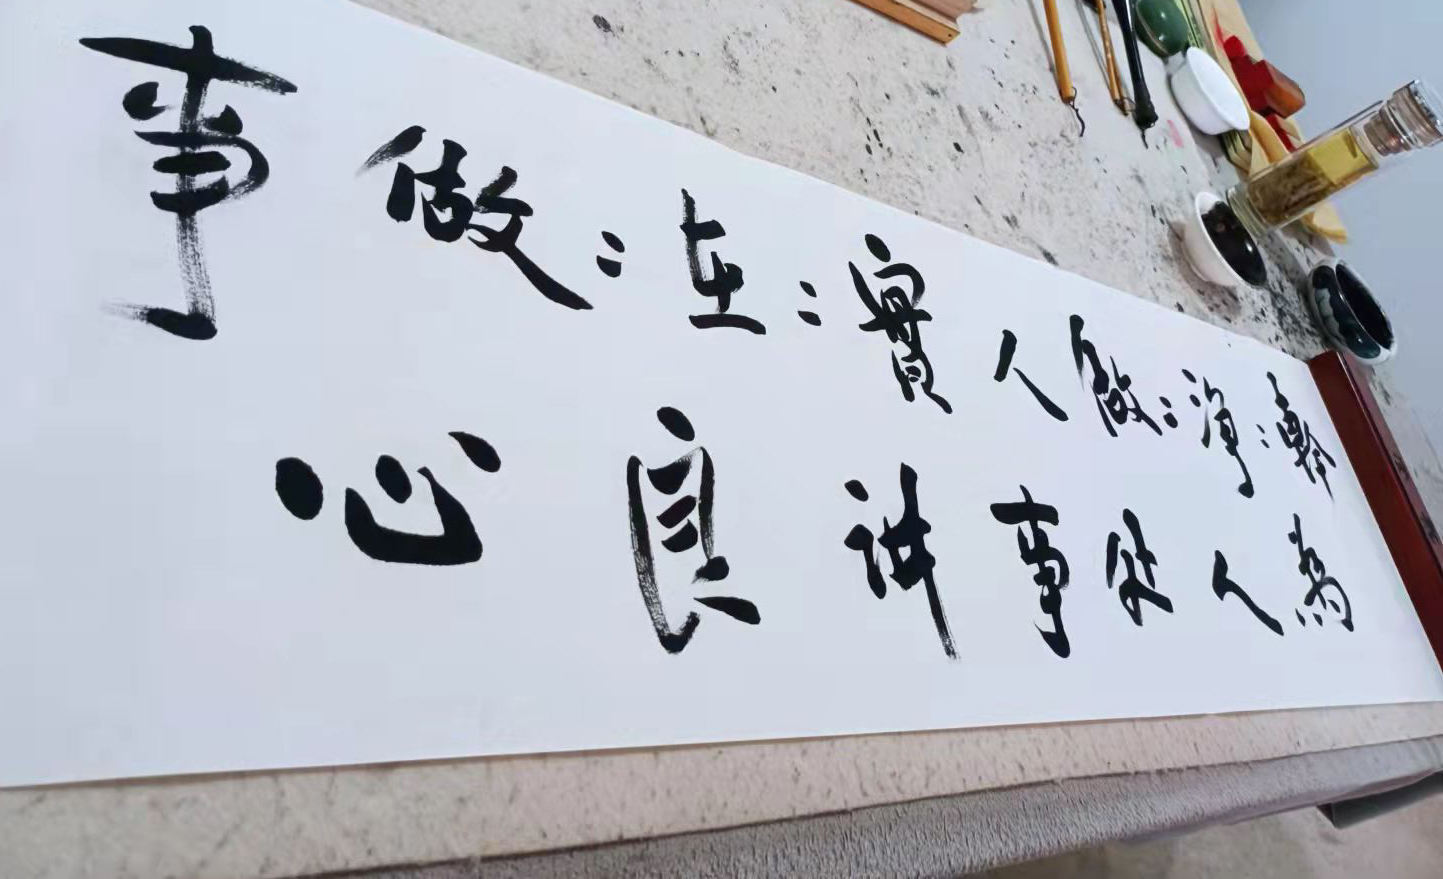 乾：净：做人實：在：做事
為人处事讲良心